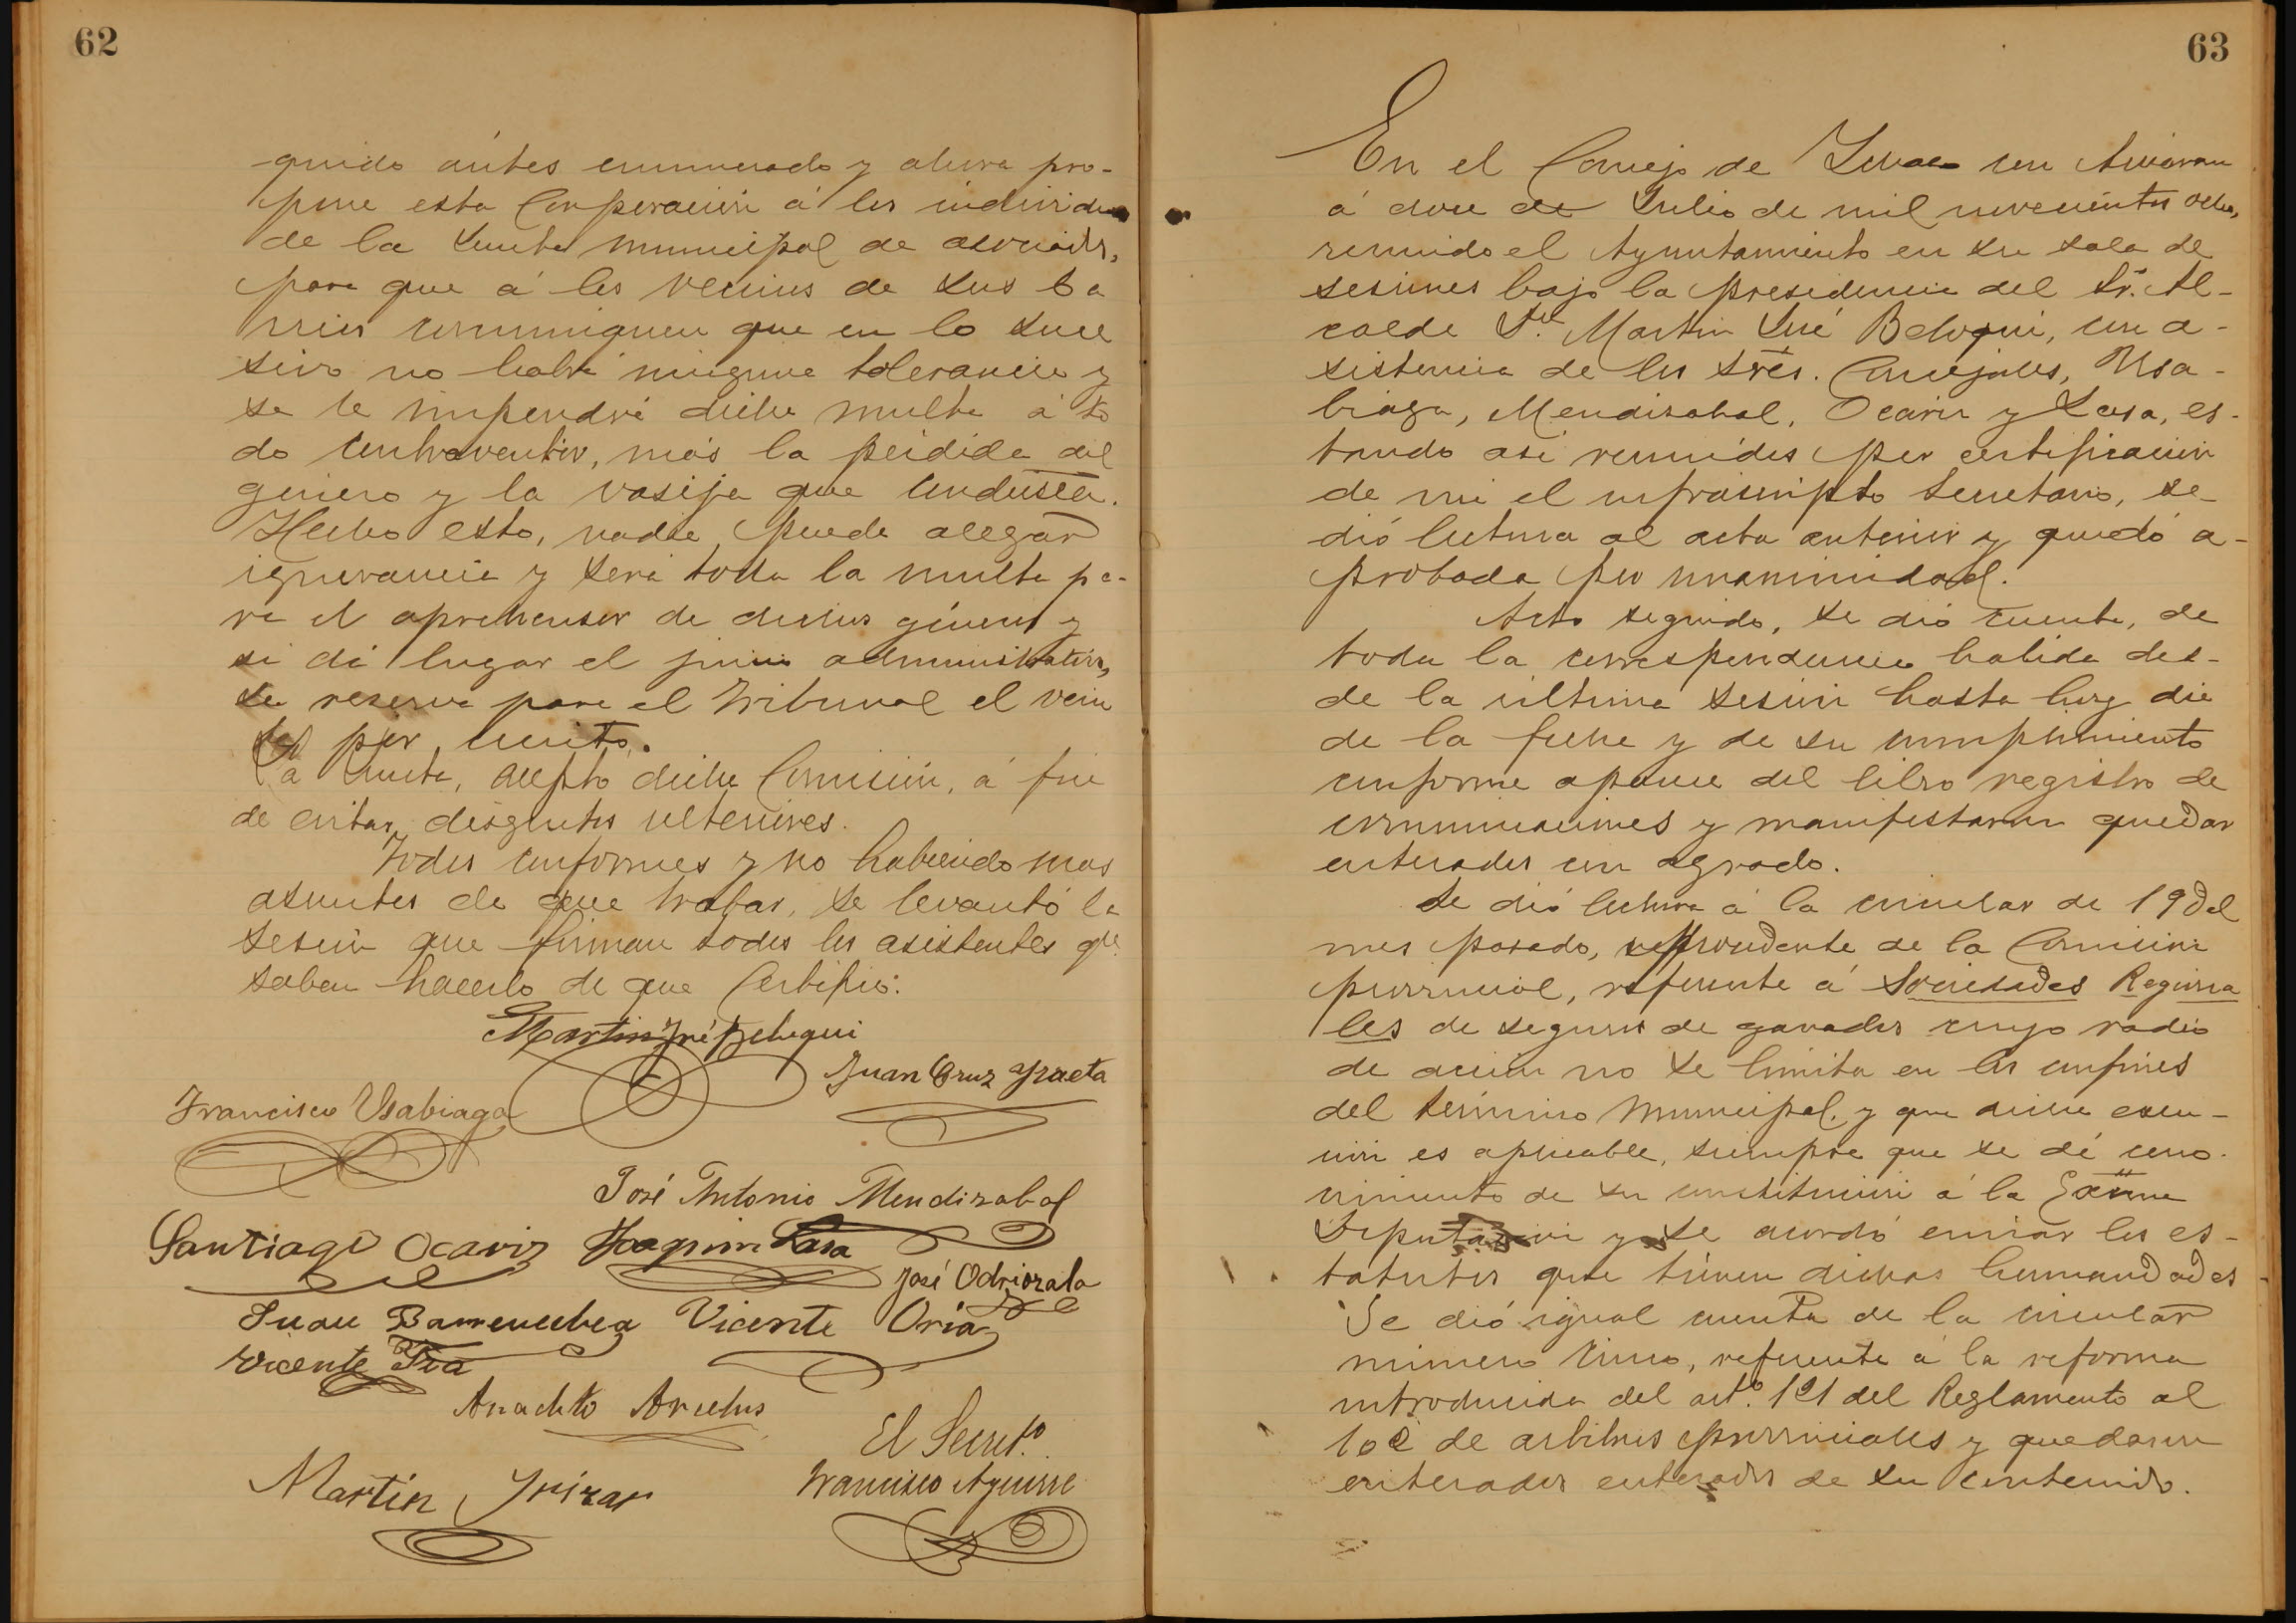 62
quido ántes enumerado y ahora pro-
pone esta Corporación á los individuos
de la Junta municipal de asociados,
para que á los vecinos de sus ba
rrios comuniquen que en lo suce
sivo no habrá ninguna tolerancia y
se le impondrá dicha multa á to
do contraventor, más la pérdida del
género y la vasija que conduzca.
Hecho esto, nadie puede alegar
ignorancia y será toda la multa pa-
ra el aprehensor de dichos géneros y
si dá lugar el juicio administrativo,
se reserva para el Tribunal el vein
por ciento.
La Junta, aceptó dicha Comisión, á fin
de evitar disgustos ulteriores.
Todos conformes y no habiendo mas
asuntos de que tratar, se levantó la
sesión que firman todos los asistentes qe.
saben hacerlo de que Certifico:
Martin José Beloqui
Juan Cruz Yraeta
Francisco Usabiaga
José Antonio Mendizabal
Santiago Ocariz Joaquin Lasa
José Odriozola
Juan Barrenechea Vicente Oria
Vicente
Anacleto Arcelus
El Secret.o
Martin Yrizar Francisco Aguirre
63
En el Concejo de con
á doce de Julio de mil novecientos ocho,
reunido el Ayuntamiento en su sala de
sesiones bajo la presidencia del Sr. Al-
calde Dn. Martin José Beloqui, con a-
sistencia de los Sres. Concejales, Usa-
biaga, Mendizabal, Ocariz y Lasa, es-
tando asi reunidos por certificación
de mi el infrascripto Secretario, se
dió lectura al acta anterior y quedó a-
probada por unanimidad.
Acto seguido, se dió cuenta, de
toda la correspondencia habida des-
de la última sesión hasta hoy dia
de la fecha y de su cumplimiento
conforme aparece del libro registro de
comunicaciones y manifestaron quedar
enterados con agrado.
Se dió lectura á la circular de 19 del
mes pasado, de la Comisión
provincial, referente á Sociedades Regiona
les de seguros de ganados cuyo radio
de acción no se limita en los confines
del término municipal, y que dicha exen-
ción es aplicable, siempre que se dé cono-
cimiento de su constitución á la Excma
Diputación y se acordó enviar los es-
tatutos que tienen dichas hermandades
Se dió igual cuenta de la circular
número cinco, referente á la reforma
introducida del art.o 121 del Reglamento al
102 de arbitrios provinciales y quedaron
enterados enterados de su contenido.